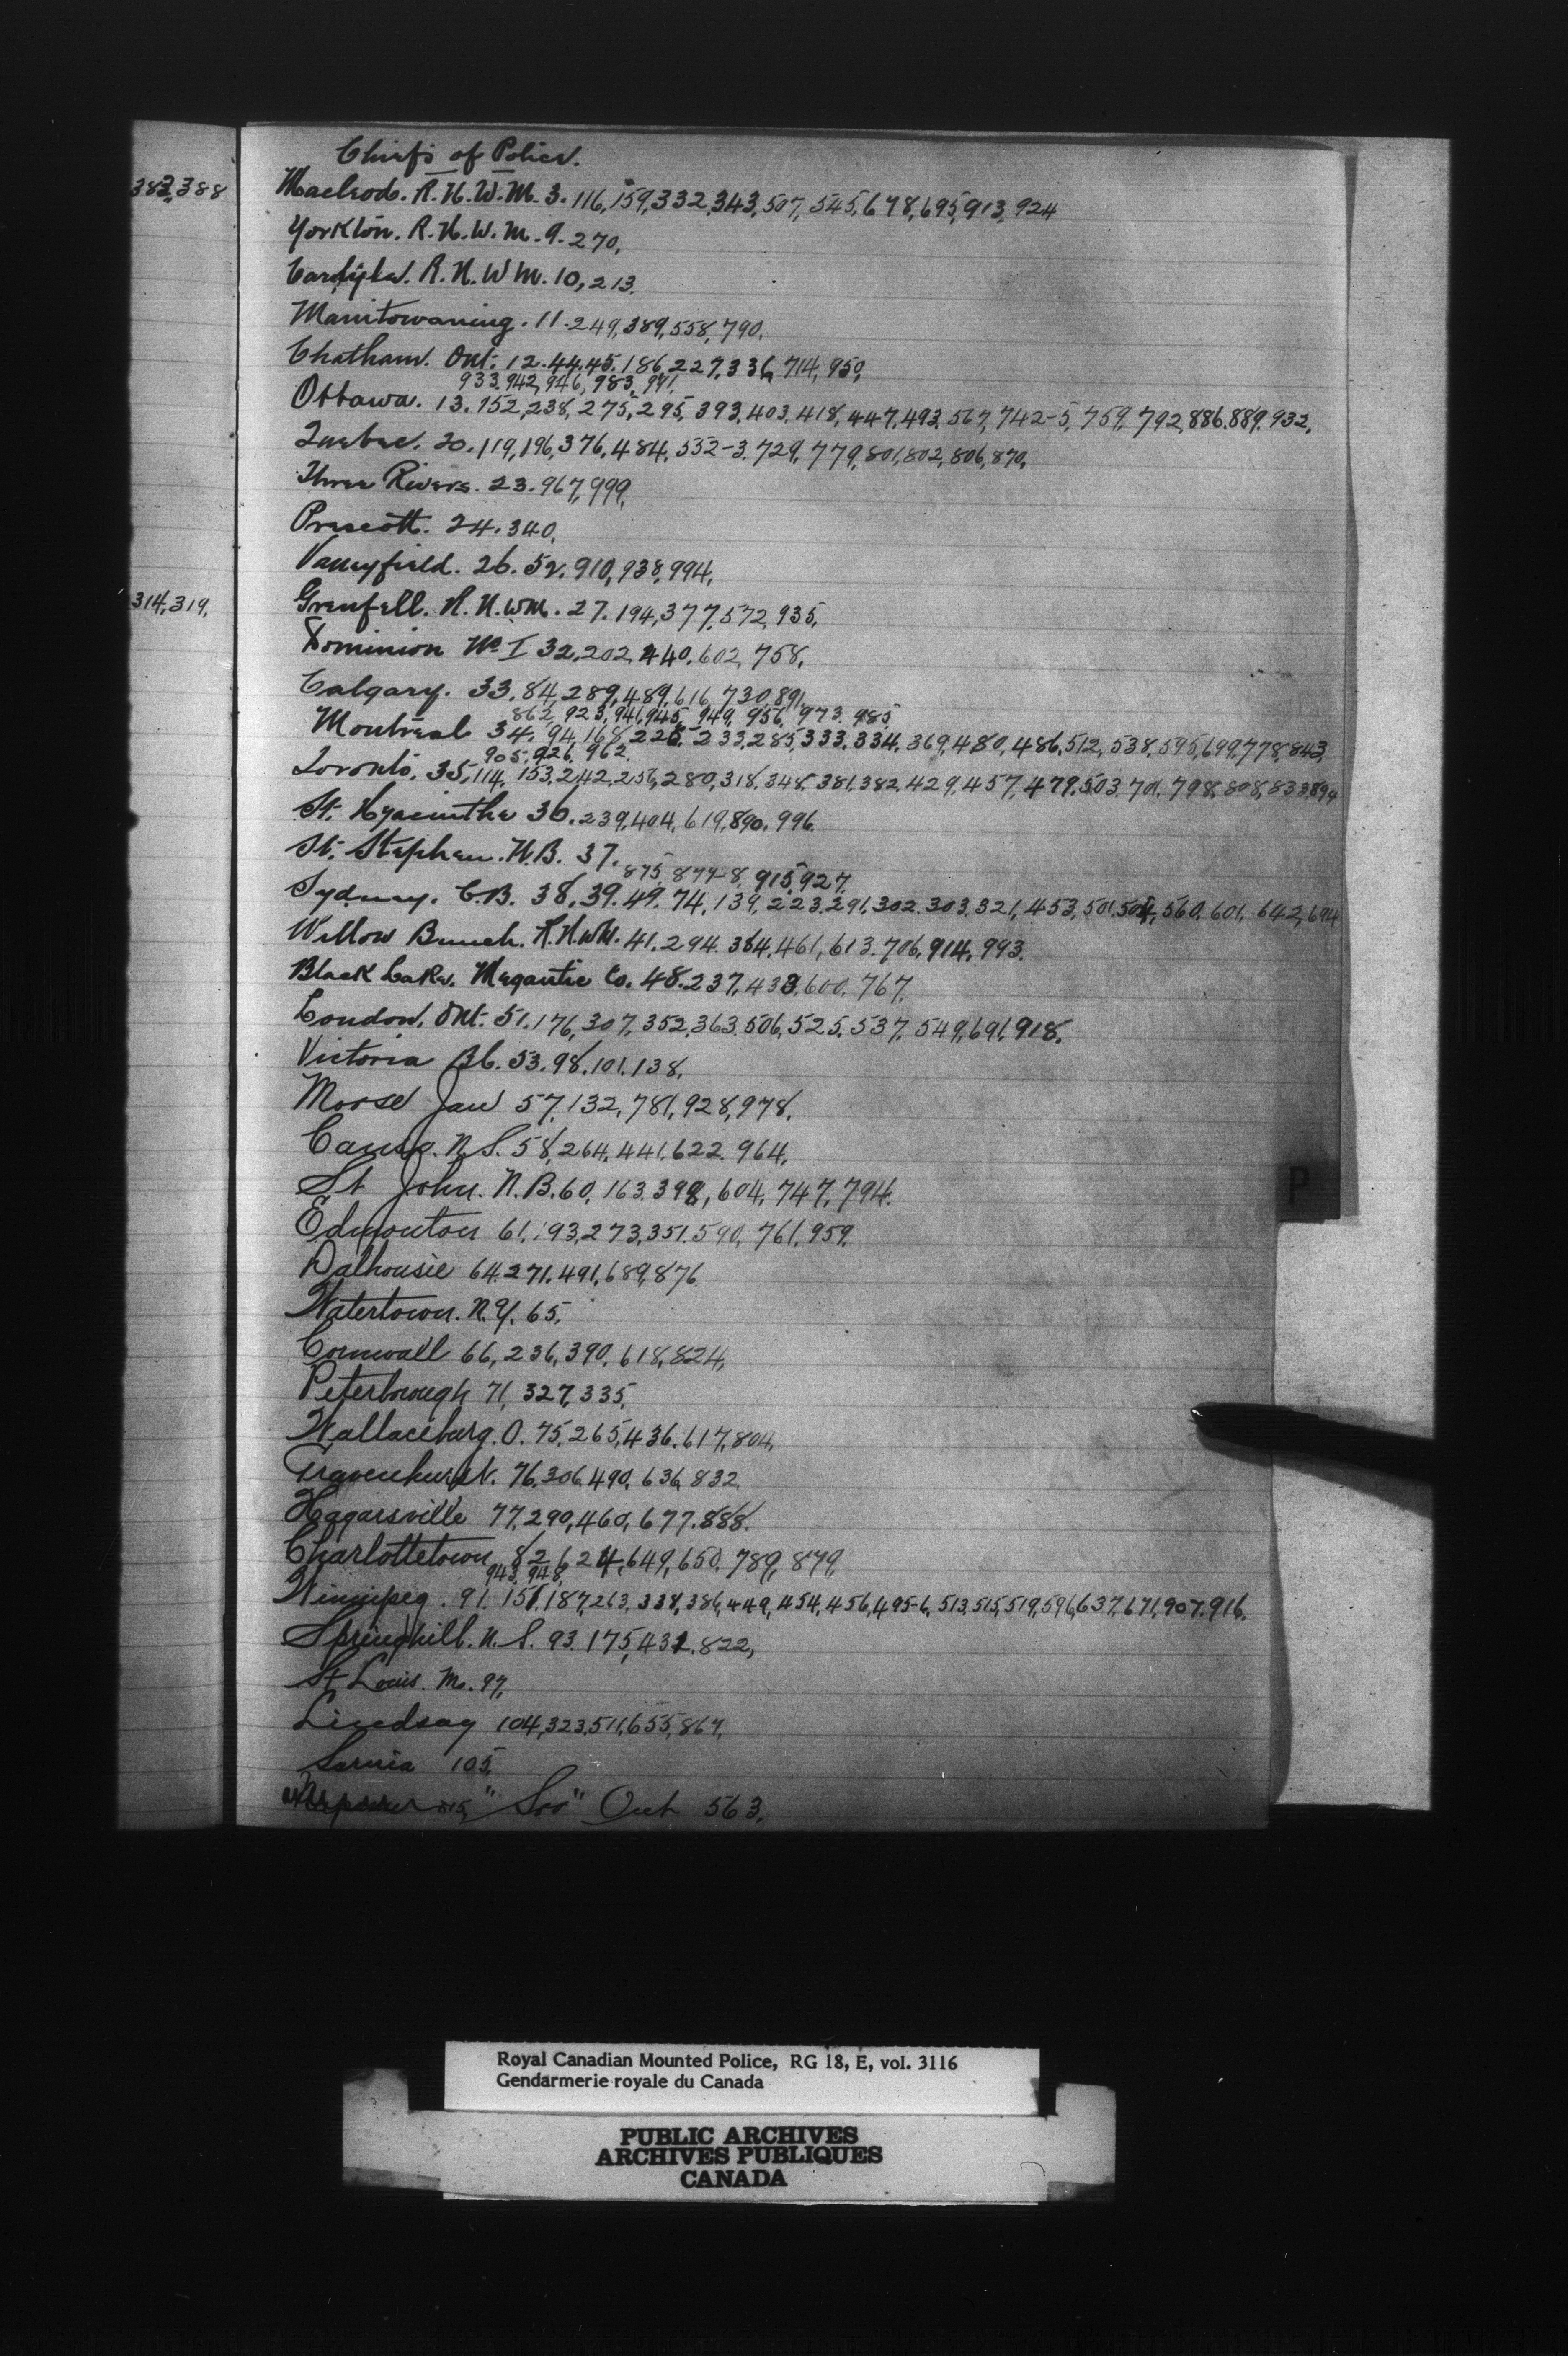 Chiefs of Police.
383,388
Macleod. R.N.W.M. 3. 116, 159, 332, 343, 507, 545, 678, 695, 913, 924
Yorkton. R.N.W.M. 9. 270,
Carlyle. R.N.W M. 10, 213.
Manitowaning. 11. 249, 389, 558, 790,
Chatham. Ont. 12. 44. 45. 186, 227, 336, 714, 950,
933. 942, 946, 983, 991,
Ottawa. 13. 152, 238, 275, 295, 393, 403, 418, 447, 493, 567, 742-5, 759, 792, 886. 889. 932,
Quebec. 20. 119, 196, 376, 484, 532-3, 729, 779, 801, 802, 806, 870,
Three Rivers. 23. 967, 999,
Prescott. 24. 340,
Valleyfield. 26. 52. 910, 938, 994,
314, 319,
Grenfell. R.N.W.M. 27. 194, 377, 572, 935,
Dominion No I 32, 202, 440, 602, 758,
Calgary. 33. 84, 289, 489, 616, 730, 891,
862, 923, 941, 945, 949, 956, 973. 985,
Montreal 34. 94, 168, 226, 233, 285, 333, 334, 369, 480, 486, 512, 538, 595, 699, 778, 843,
905, 926, 962
Toronto. 35, 114, 153, 242, 256, 280, 318, 348, 381, 382, 429, 457, 479, 503, 701, 798, 808, 833, 894
St. Hyacinthe 36. 239, 404, 619, 890, 996
St. Stephen. N.B. 37.
875, 877-8, 915, 927,
Sydney. C.B. 38, 39. 49. 74, 139, 223, 291, 302, 303, 321, 453, 501, 504, 560, 601, 642, 694
Willow Bunch. R.N.W.M. 41. 294. 364, 461, 613. 706, 914, 993.
Black Lake. Megantic Co. 48. 237, 433, 600, 767,
London. Ont. 51. 176, 307, 352, 363, 506, 525, 537, 549, 691, 918,
Victoria B.C. 53. 98, 101, 138,
Moose Jaw 57, 132, 781, 928, 978,
Canso. N.S. 58, 264, 441, 622, 964,
St John. N.B. 60, 163, 398, 604, 747, 794.
P
Edmonton 61, 193, 273, 351, 590, 761, 959,
Dalhousie 64. 271, 491, 689, 876
Watertown. N.Y. 65,
Cornwall 66, 236, 390, 618, 824,
Peterborough 71, 327, 335,
Wallaceburg. O. 75, 265, 436, 617, 804,
Gravenhurst. 76, 306, 490, 636, 832
Hagarsville 77, 290, 460, 677, 888.
Charlottetown 82, 624, 649, 650, 789, 879,
943, 948,
Winnipeg. 91. 151, 187, 263, 338, 386, 449, 454, 456, 495-6, 513, 515, 519, 596, 637, 671, 907, 916.
Springhill. N.S. 93. 175, 431, 822,
St Louis. M. 97,
Lindsay 104, 323, 511, 655, 867,
Sarnia 105,
"Soo" Ont 563,
Royal Canadian Mounted Police, RG 18, E, vol. 3116
Gendarmerie royale du Canada
PUBLIC ARCHIVES
ARCHIVES PUBLIQUES
CANADA